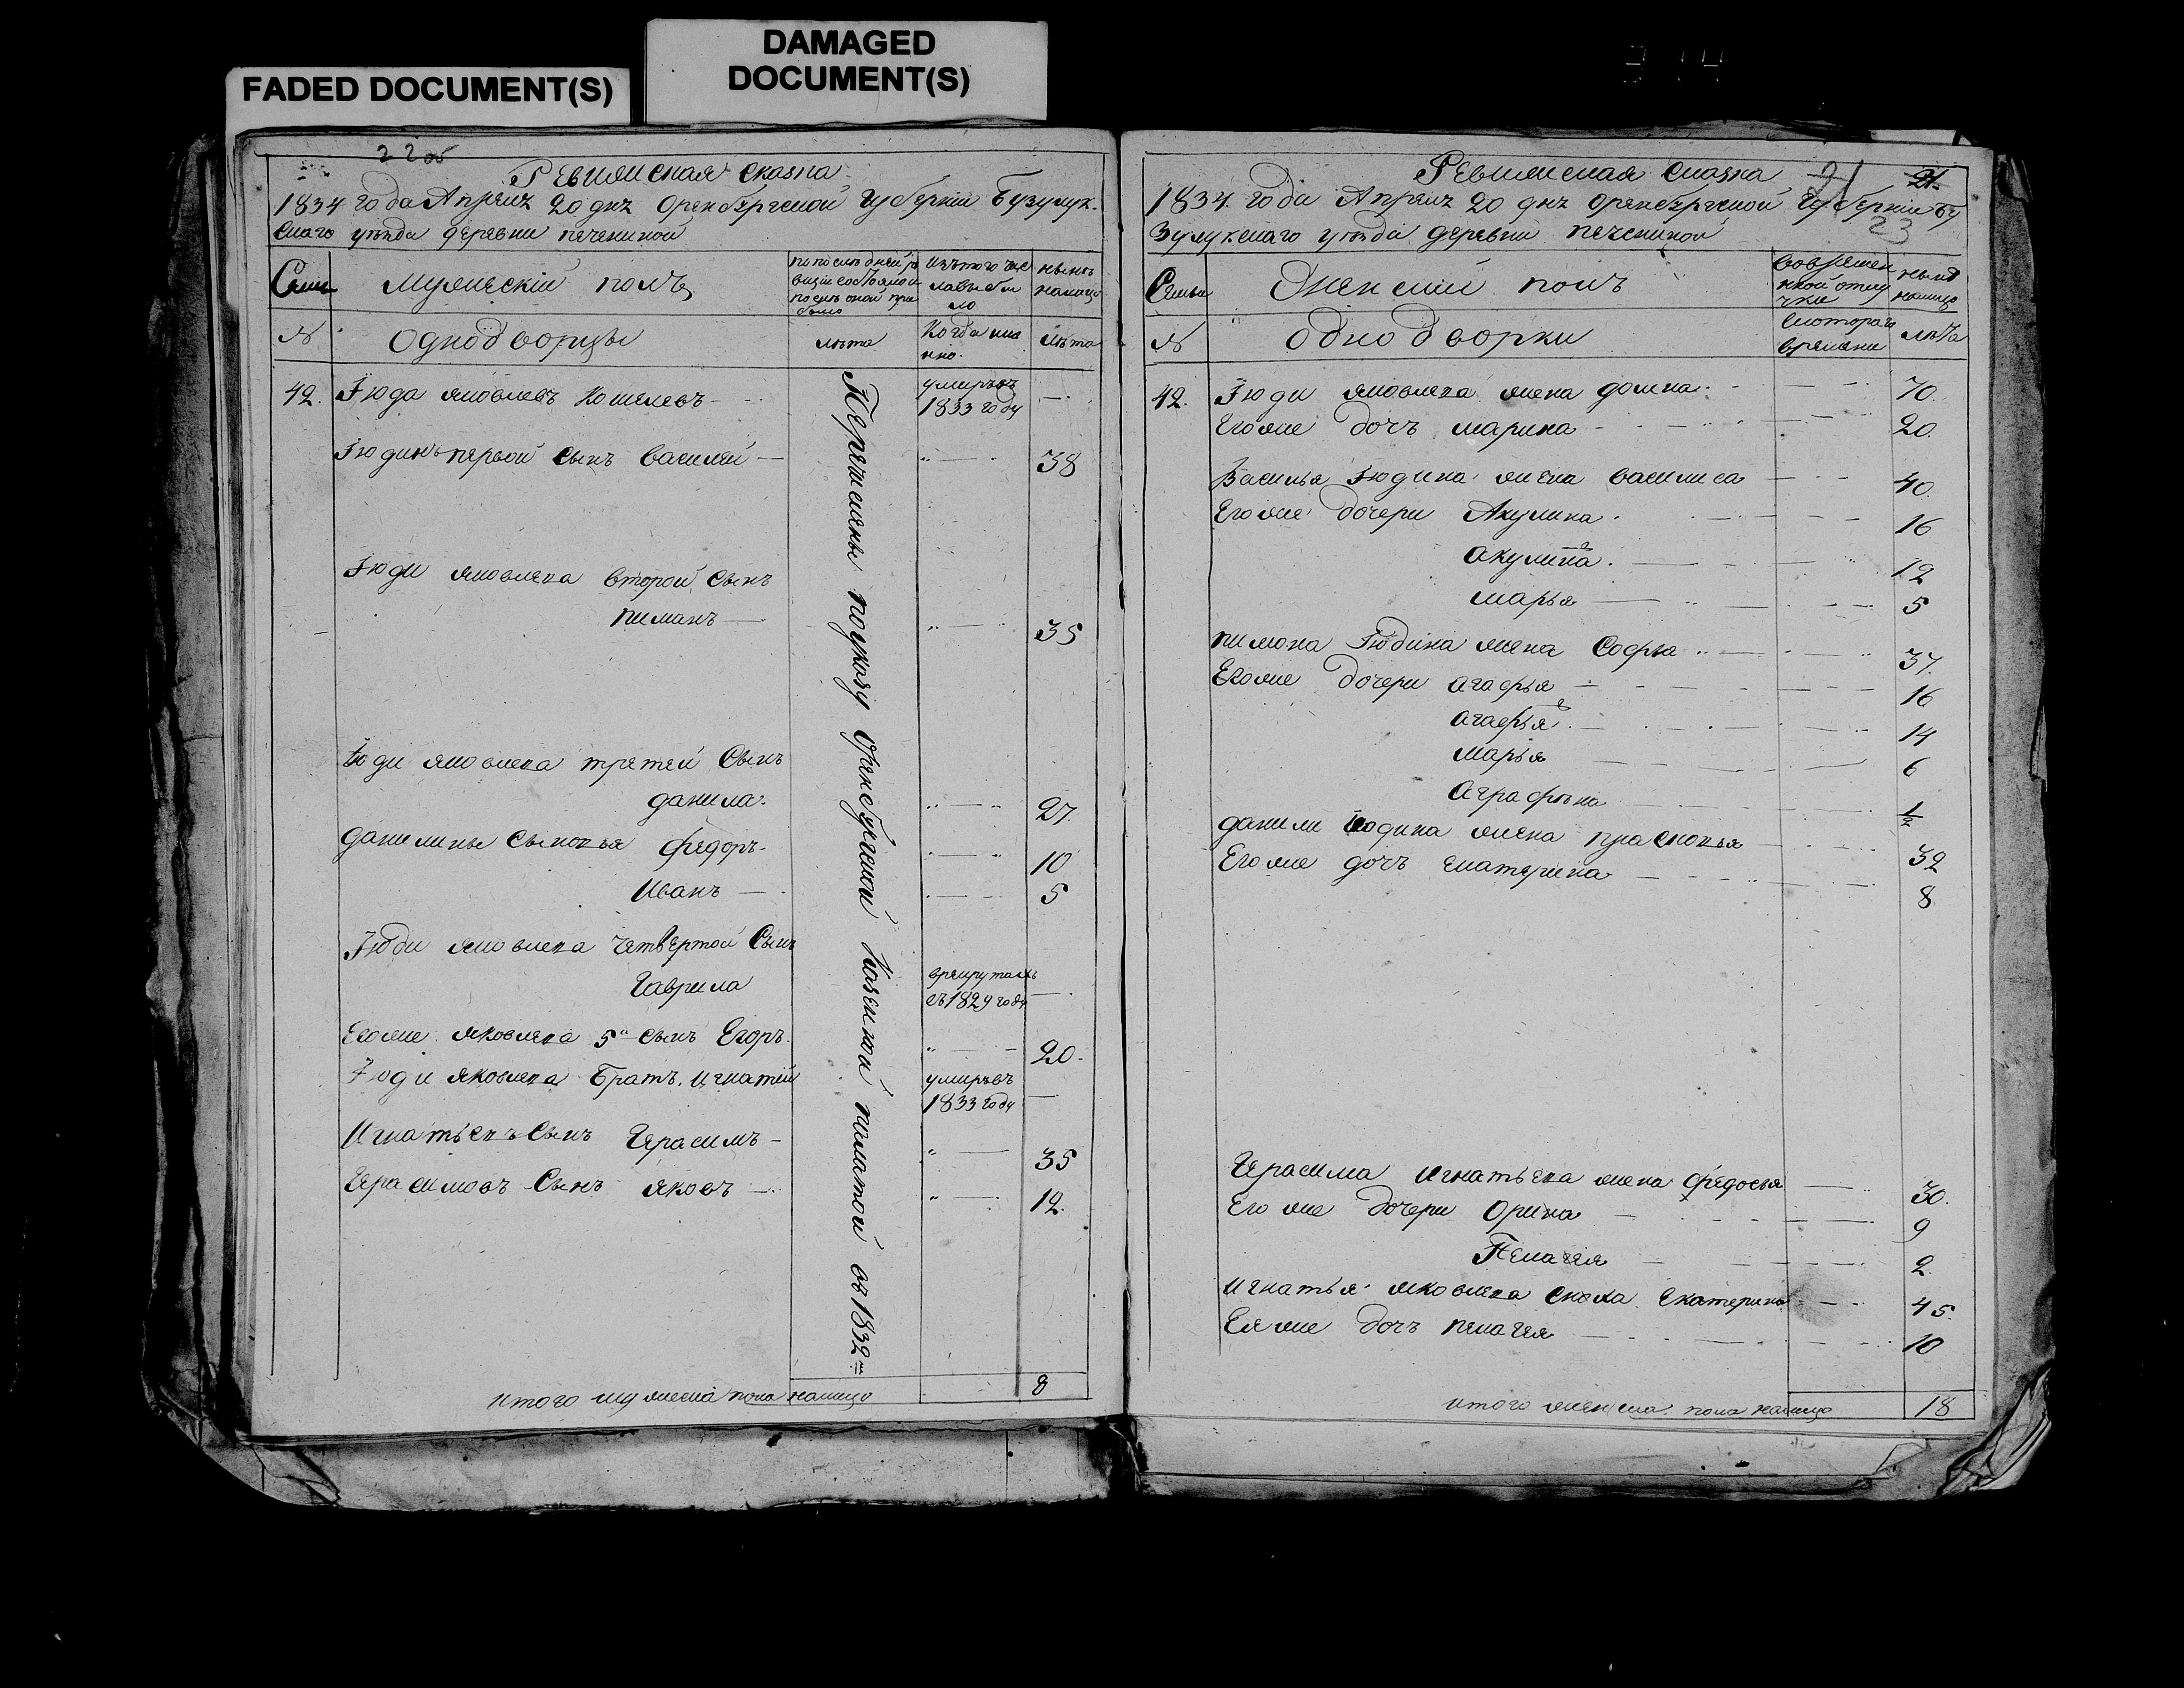 FADED DOCUMENT(S)
DAMAGED
DOCUMENT(S)
22 об
Ревизская сказка
1834 года Апреля 20 дня Оренбургской Губернии Бузулук-
скаго уезда деревни печениной
Семьи
Мужескій полъ
по последней ре
визіи состояло и
после оной при
было
изъ того чис
ла выбы
ло
ныне
налицо
№
Однодворцы
лета
Когда име
нно.
лета
42. Июда яковлевъ Кошелевъ
умиръ въ
1833 году
Июдинъ первой сынъ василей — 38
Июди яковлева второй сынъ
пиманъ — 35
Июди яковлева третей Сынъ
данила. 27.
данилины Сыновья федоръ. 10
Иванъ — 5
Июди яковлева четвертой Сынъ
Гаврила
в рекрутахъ
съ 1829 году
Егоже яковлева 5й сынъ Егоръ. 20.
Июди яковлева Братъ игнатей
умиръ въ
1833 году
Игнатьевъ сынъ Герасимъ — 35
Герасимовъ Сынъ яковъ — 12.
Перечислены по указу Оренбургской Казенной палатой въ 1832 м
итого мужеска пола налицо 8
Ревизская сказка 21 21.
1834. года Апреля 20 дня Оренбургской Губернии Бу
23
зулукскаго уезда деревни печениной
Семьи
Женскій полъ
вовремен
ной отлу
чке
ныне
налицо
№
однодворки
с котораго
времени
лета
42. Июди яковлева жена домна. 70.
Егоже дочь марина 20.
Василья Июдина жена василиса 40.
Егоже дочери Акулина. 16
акулина 2. 12
марья 5
пимона Июдина жена Софья 37.
Егоже дочери агафья 16
агафья 2. 14
марья 6
Аграфена 1/2
данили Июдина жена прасковья 32
Егоже дочь екатерина 8
Герасима Игнатьева жена федосья 30.
Егоже дочери Орина 9
Пелагея 2.
Игнатья яковлева сноха Екатерина 45.
Еяже дочь пелагея 10
итого женска пола налицо 18